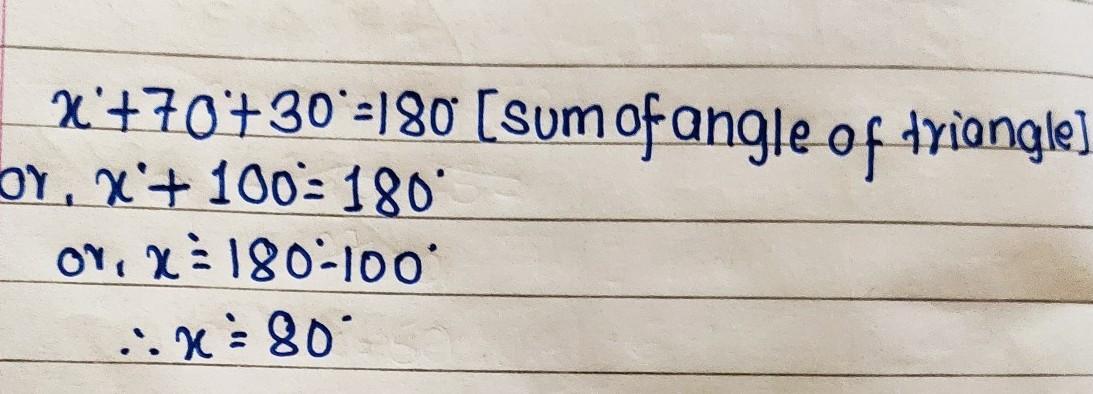 x°+70°+30°=180° [sum of angle of triangle]
or, x°+100°=180°
or, x°=180°-100°
∴ x°=80°